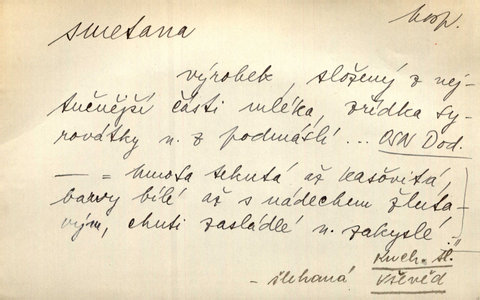 hosp.
smetana
výrobek, složený z nej-
tučnější části mléka, zřídka sy-
rovátky n. z podmáslí ... OSN Dod.
— = hmota tekutá až kašovitá,
barvy bílé až s nádechem žluta-
vým, chuti zasládlé n. zakyslé.
Kuch. sl.
- šlehaná Vševěd